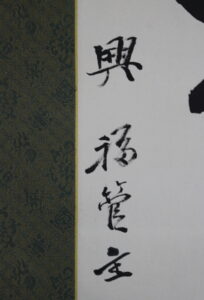 興福管主